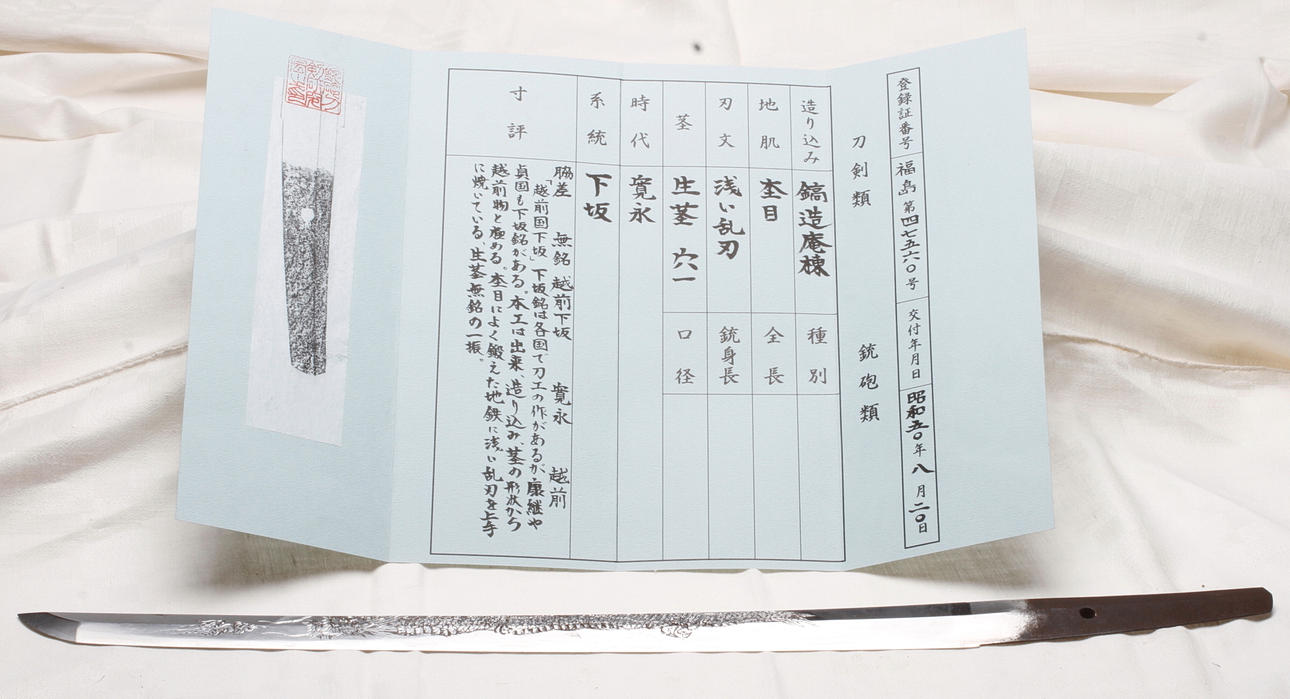 登録証番号 福島 第四七五六〇号 交付年月日 昭和五〇年八月二〇日
刀剣類 銃砲類
造り込み 鎬造庵棟 種別
地肌 杢目 全長
刃文 浅い乱刃 銃身長
茎 生茎 穴一 口径
時代 寛永
系統 下坂
寸評
脇差 無銘 越前下坂 寛永 越前
「越前国下坂」下坂銘は各国で刀工の作があるが康継や
貞国も下坂銘がある。本工は出来、造り込み、茎の形状から
越前物と極める。杢目によく鍛えた地鉄に浅い乱刃を上手
に焼いている、生茎無銘の一振。